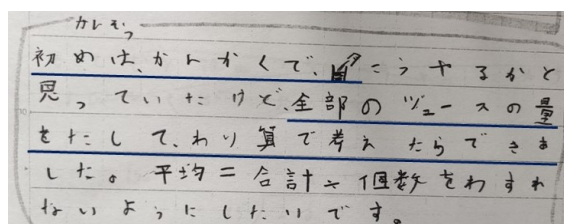 初めは、かんかくで、こうやるかと
思っていたけど、全部のジュースの量
をたして、わり算で考えたらできま
した。平均＝合計÷個数をわすれ
ないようにしたいです。